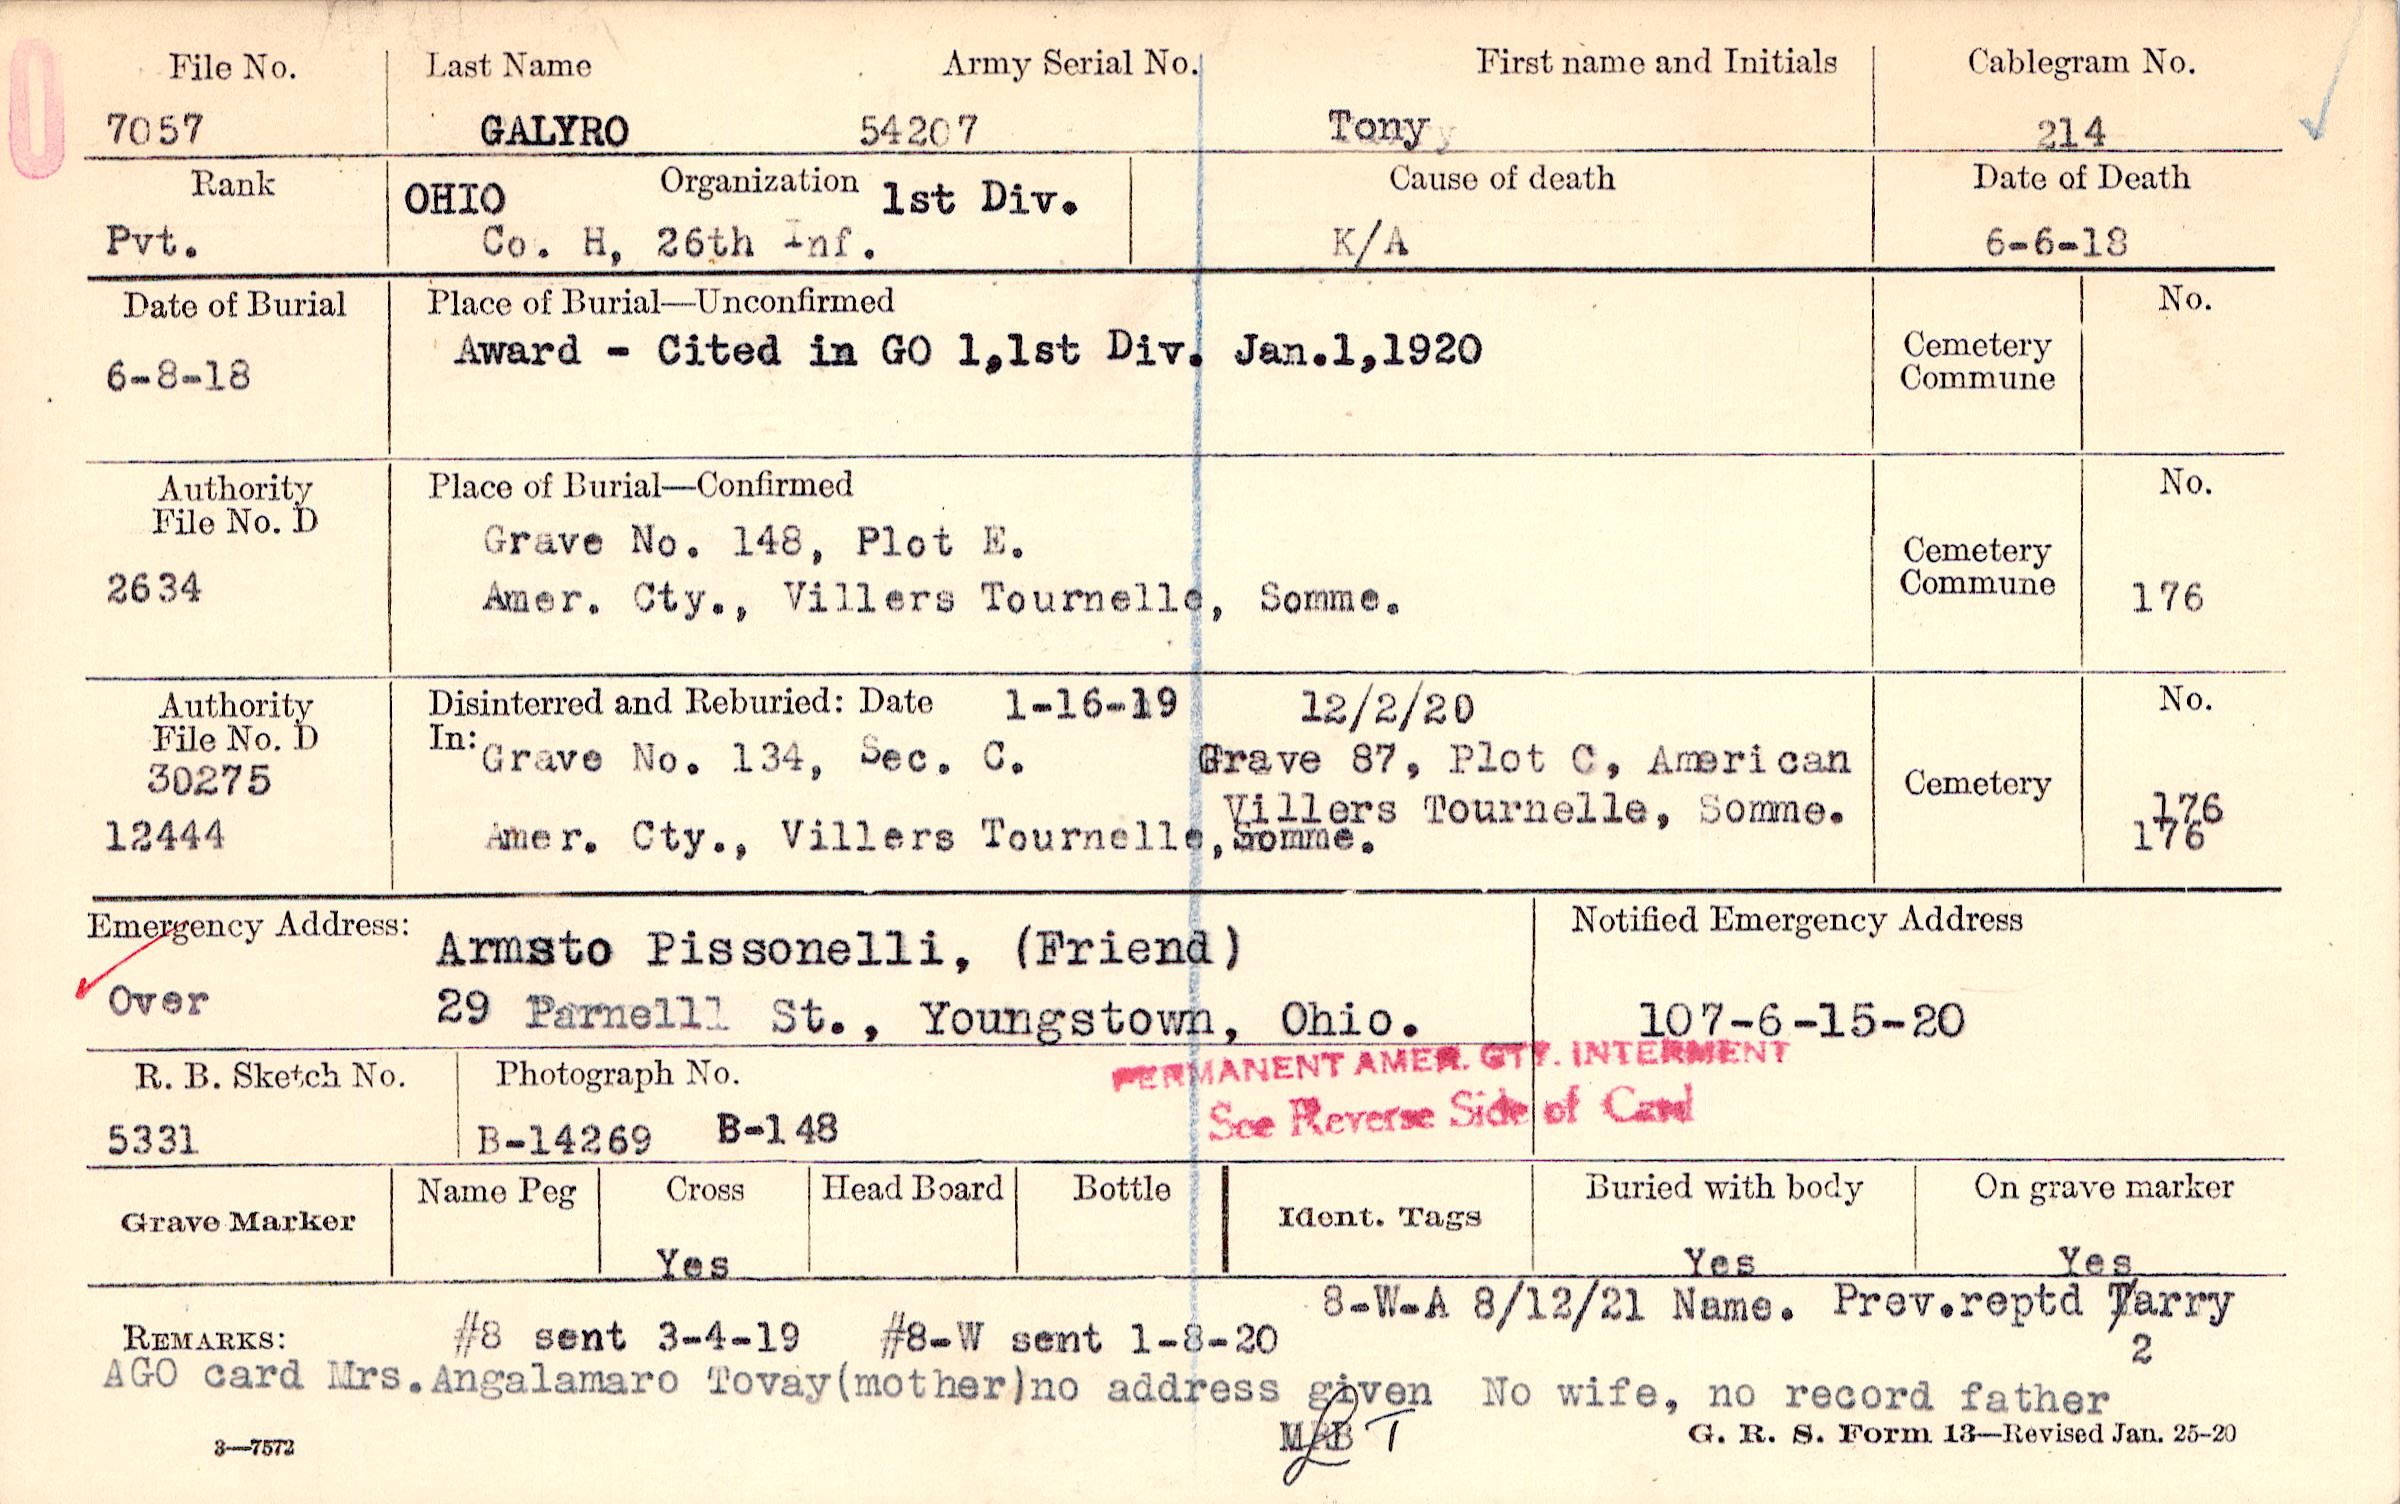 File No. Last Name Army Serial No. First name and Initials Cablegram No.
7057 GALYRO 54207 Tony 214
Rank OHIO Organization 1st Div. Cause of death Date of Death
Pvt. Co. H, 26th Inf. K/A 6-6-18
Date of Burial Place of Burial—Unconfirmed No.
Award - Cited in GO 1,1st Div. Jan.1,1920 Cemetery
6-8-18 Commune
Authority Place of Burial—Confirmed No.
File No. D
Grave No. 148, Plot E. Cemetery
2634 Amer. Cty., Villers Tournelle, Somme. Commune 176
Authority Disinterred and Reburied: Date 1-16-19 12/2/20 No.
File No. D In: Grave No. 134, Sec. C. Grave 87, Plot C, American
30275 Cemetery
Villers Tournelle, Somme. 176
12444 Amer. Cty., Villers Tournelle, Somme. 176
Emergency Address: Notified Emergency Address
Armsto Pissonelli, (Friend)
Over 29 Parnelll St., Youngstown, Ohio. 107-6-15-20
PERMANENT AMER. CTY. INTERMENT
R. B. Sketch No. Photograph No.
See Reverse Side of Card
5331 B-14269 B-148
Name Peg Cross Head Board Bottle Buried with body On grave marker
Grave Marker Ident. Tags
Yes Yes Yes
8-W-A 8/12/21 Name. Prev.reptd Tarry
REMARKS: #8 sent 3-4-19 #8-W sent 1-8-20 2
AGO card Mrs.Angalamaro Tovay(mother)no address given No wife, no record father
3—7572 T G. R. S. Form 13—Revised Jan. 25-20